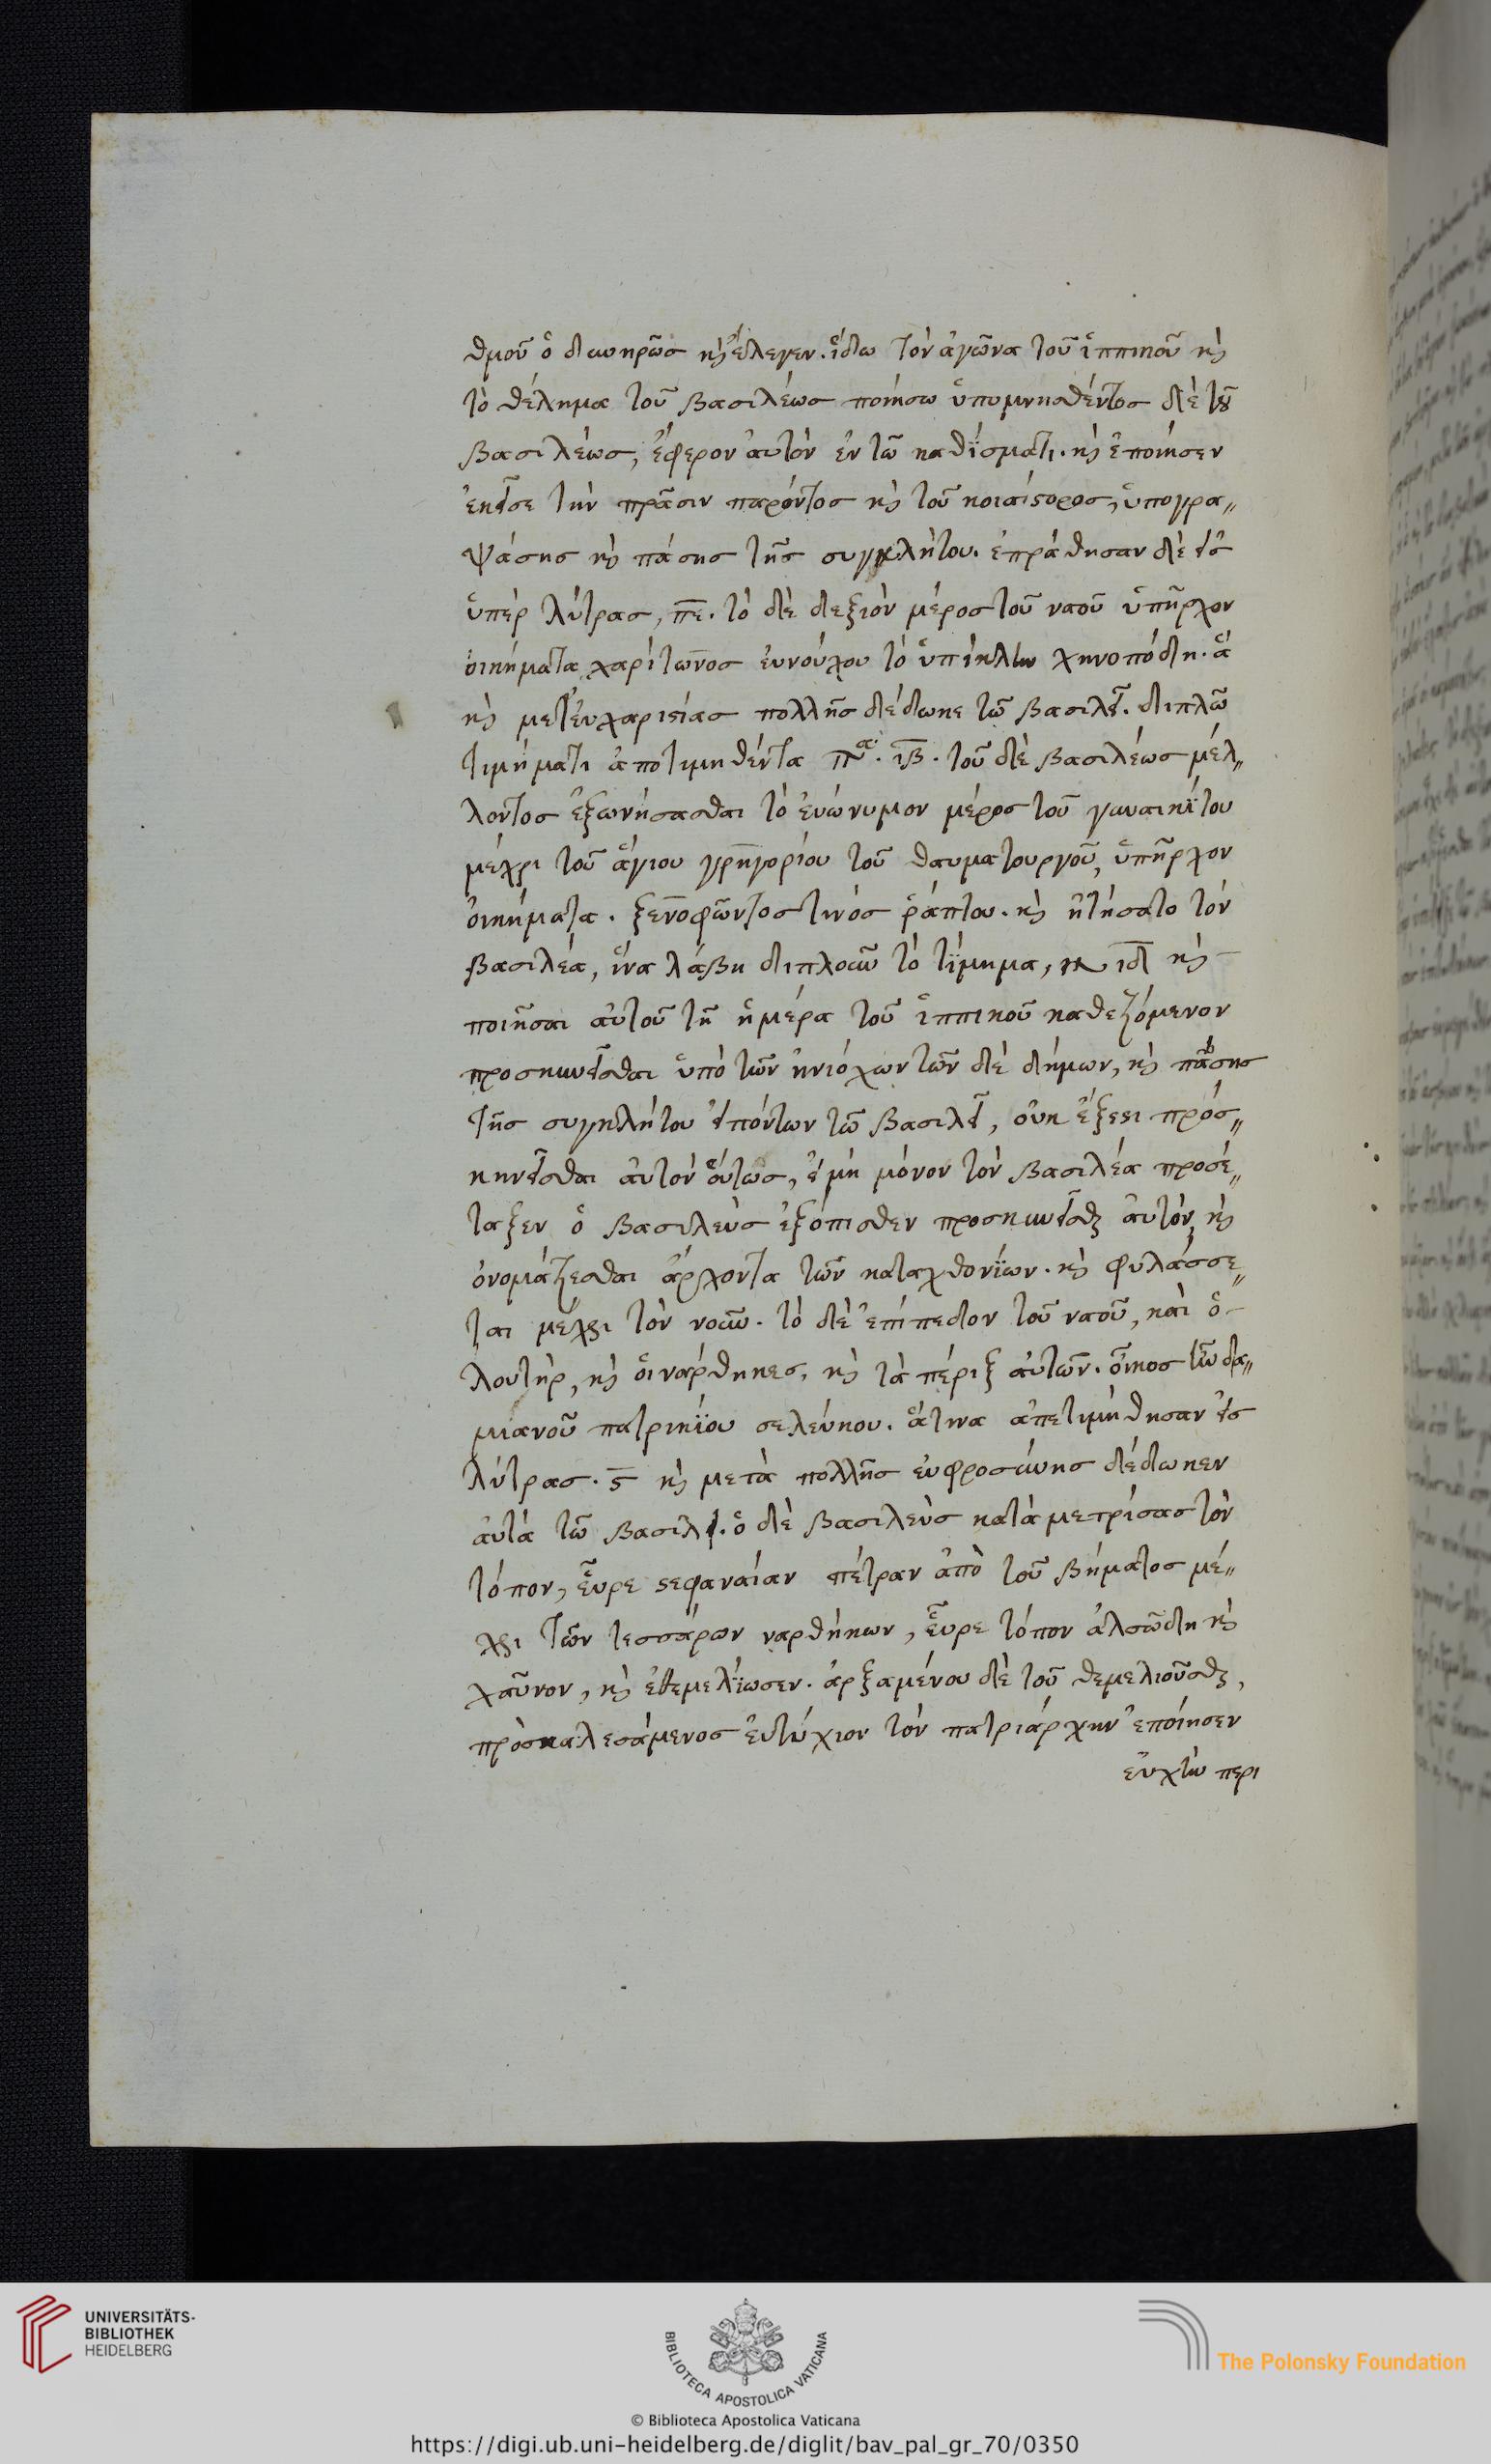 θμοῦ ὁ διωηρῶσ κὶ ἔλεγεν. ἵδω τὸν ἀγῶνα τοῦ ἱππικοῦ κὶ
τὸ θέλημα τοῦ βασιλέωσ ποιήσω ὑπομνησθέντοσ δὲ τοῦ
βασιλέωσ, ἔφερον ἀυτὸν ἐν τῶ καθΐσματι. κὶ ἐποίησεν
ἐκεῖσε τὴν πρᾶσιν παρόντοσ κὶ τοῦ κοιαίστοροσ, ὑπογρα„
ψάσησ κὶ πάσησ τῆσ συγκλήτου. ἐπράθησαν δὲ εἰσ
ὑπὲρ λύτρασ, πε. τὸ δὲ δεξιὸν μέροσ τοῦ ναοῦ ὑπῆρχον
ὀικήματα χαρίτωνοσ ἐυνούχου τὸ ὑπίκλην χηνοπόδη. ἃ
κὶ μετ' ἐυχαριστίασ πολλῆσ δέδωκε τῶ βασιλεῖ. διπλῶ
τιμήματι ἀποτιμηθέντα . ιβ. τοῦ δὲ βασιλέωσ μέλ„
λοντοσ ἐξωνήσασθαι τὸ ἐυώνυμον μέροσ τοῦ γυναικίτου
μέχρι τοῦ ἁγιου γρηγορίου τοῦ θαυματουργοῦ, ὑπῆρχον
ὀικήματα. ξενοφῶντοσ τινόσ ῥάπτου. κὶ ἠτήσατο τὸν
βασιλέα, ἵνα λάβη διπλοῦν τὸ τΐμημα, ιδ κὶ
ποιῆσαι ἀυτοῦ τῆ ἡμέρα τοῦ ἱππικοῦ καθεζόμενον
προσκυνεῖσθαι ὑπὸ τῶν ἡνιόχων τῶν δὲ δήμων, κὶ πάσησ
τῆσ συγκλήτου εἰπόντων τῶ βασιλεῖ, ὀυκ ἔξεστι πρόσ„
κηνεῖσθαι ἀυτὸν ὅυτωσ, εἰ μὴ μόνον τὸν βασιλέα προσέ„
ταξεν ὁ βασιλεὺσ ἐξόπισθεν προσκυνεῖσθαι ἀυτὸν, κὶ
ὀνομάζεσθαι ἄρχοντα τῶν καταχθονΐων. κὶ φυλάσσε„
ται μέχρι τὸν νοῦν. τὸ δὲ ἐπίπεδον τοῦ ναοῦ, καὶ ὁ
λουτὴρ, κὶ ὁι νάρθηκεσ, κὶ τὰ πέριξ ἀυτῶν. ὄικοσ τῶν δα„
μιανοῦ πατρικΐου σελεύκου. ἅτινα ἀπετιμήθησαν εἰσ
λύτρασ. ϛ κὶ μετὰ πολλῆσ ἐυφροσύνησ δέδωκεν
ἀυτὰ τῶ βασιλεῖ. ὁ δὲ βασιλεὺσ καταμετρίσασ τὸν
τόπον, ἕυρε στεφαναίαν πέτραν ἀπὸ τοῦ βήματοσ μέ„
χρι τῶν τεσσάρων ναρθήκων, ἕυρε τόπον ἀλσῶδη κὶ
χαῦνον, κὶ ἐθεμελΐωσεν. ἀρξαμένου δὲ τοῦ θεμελιοῦσθαι,
πρὸσκαλεσάμενοσ ἐυτύχιον τὸν πατριάρχην ἐποίησεν
ἐυχὴν περι
UNIVERSITÄTS-
BIBLIOTHEK
HEIDELBERG
BIBLIOTECA APOSTOLICA VATICANA
The Polonsky Foundation
© Biblioteca Apostolica Vaticana
https://digi.ub.uni-heidelberg.de/diglit/bav_pal_gr_70/0350